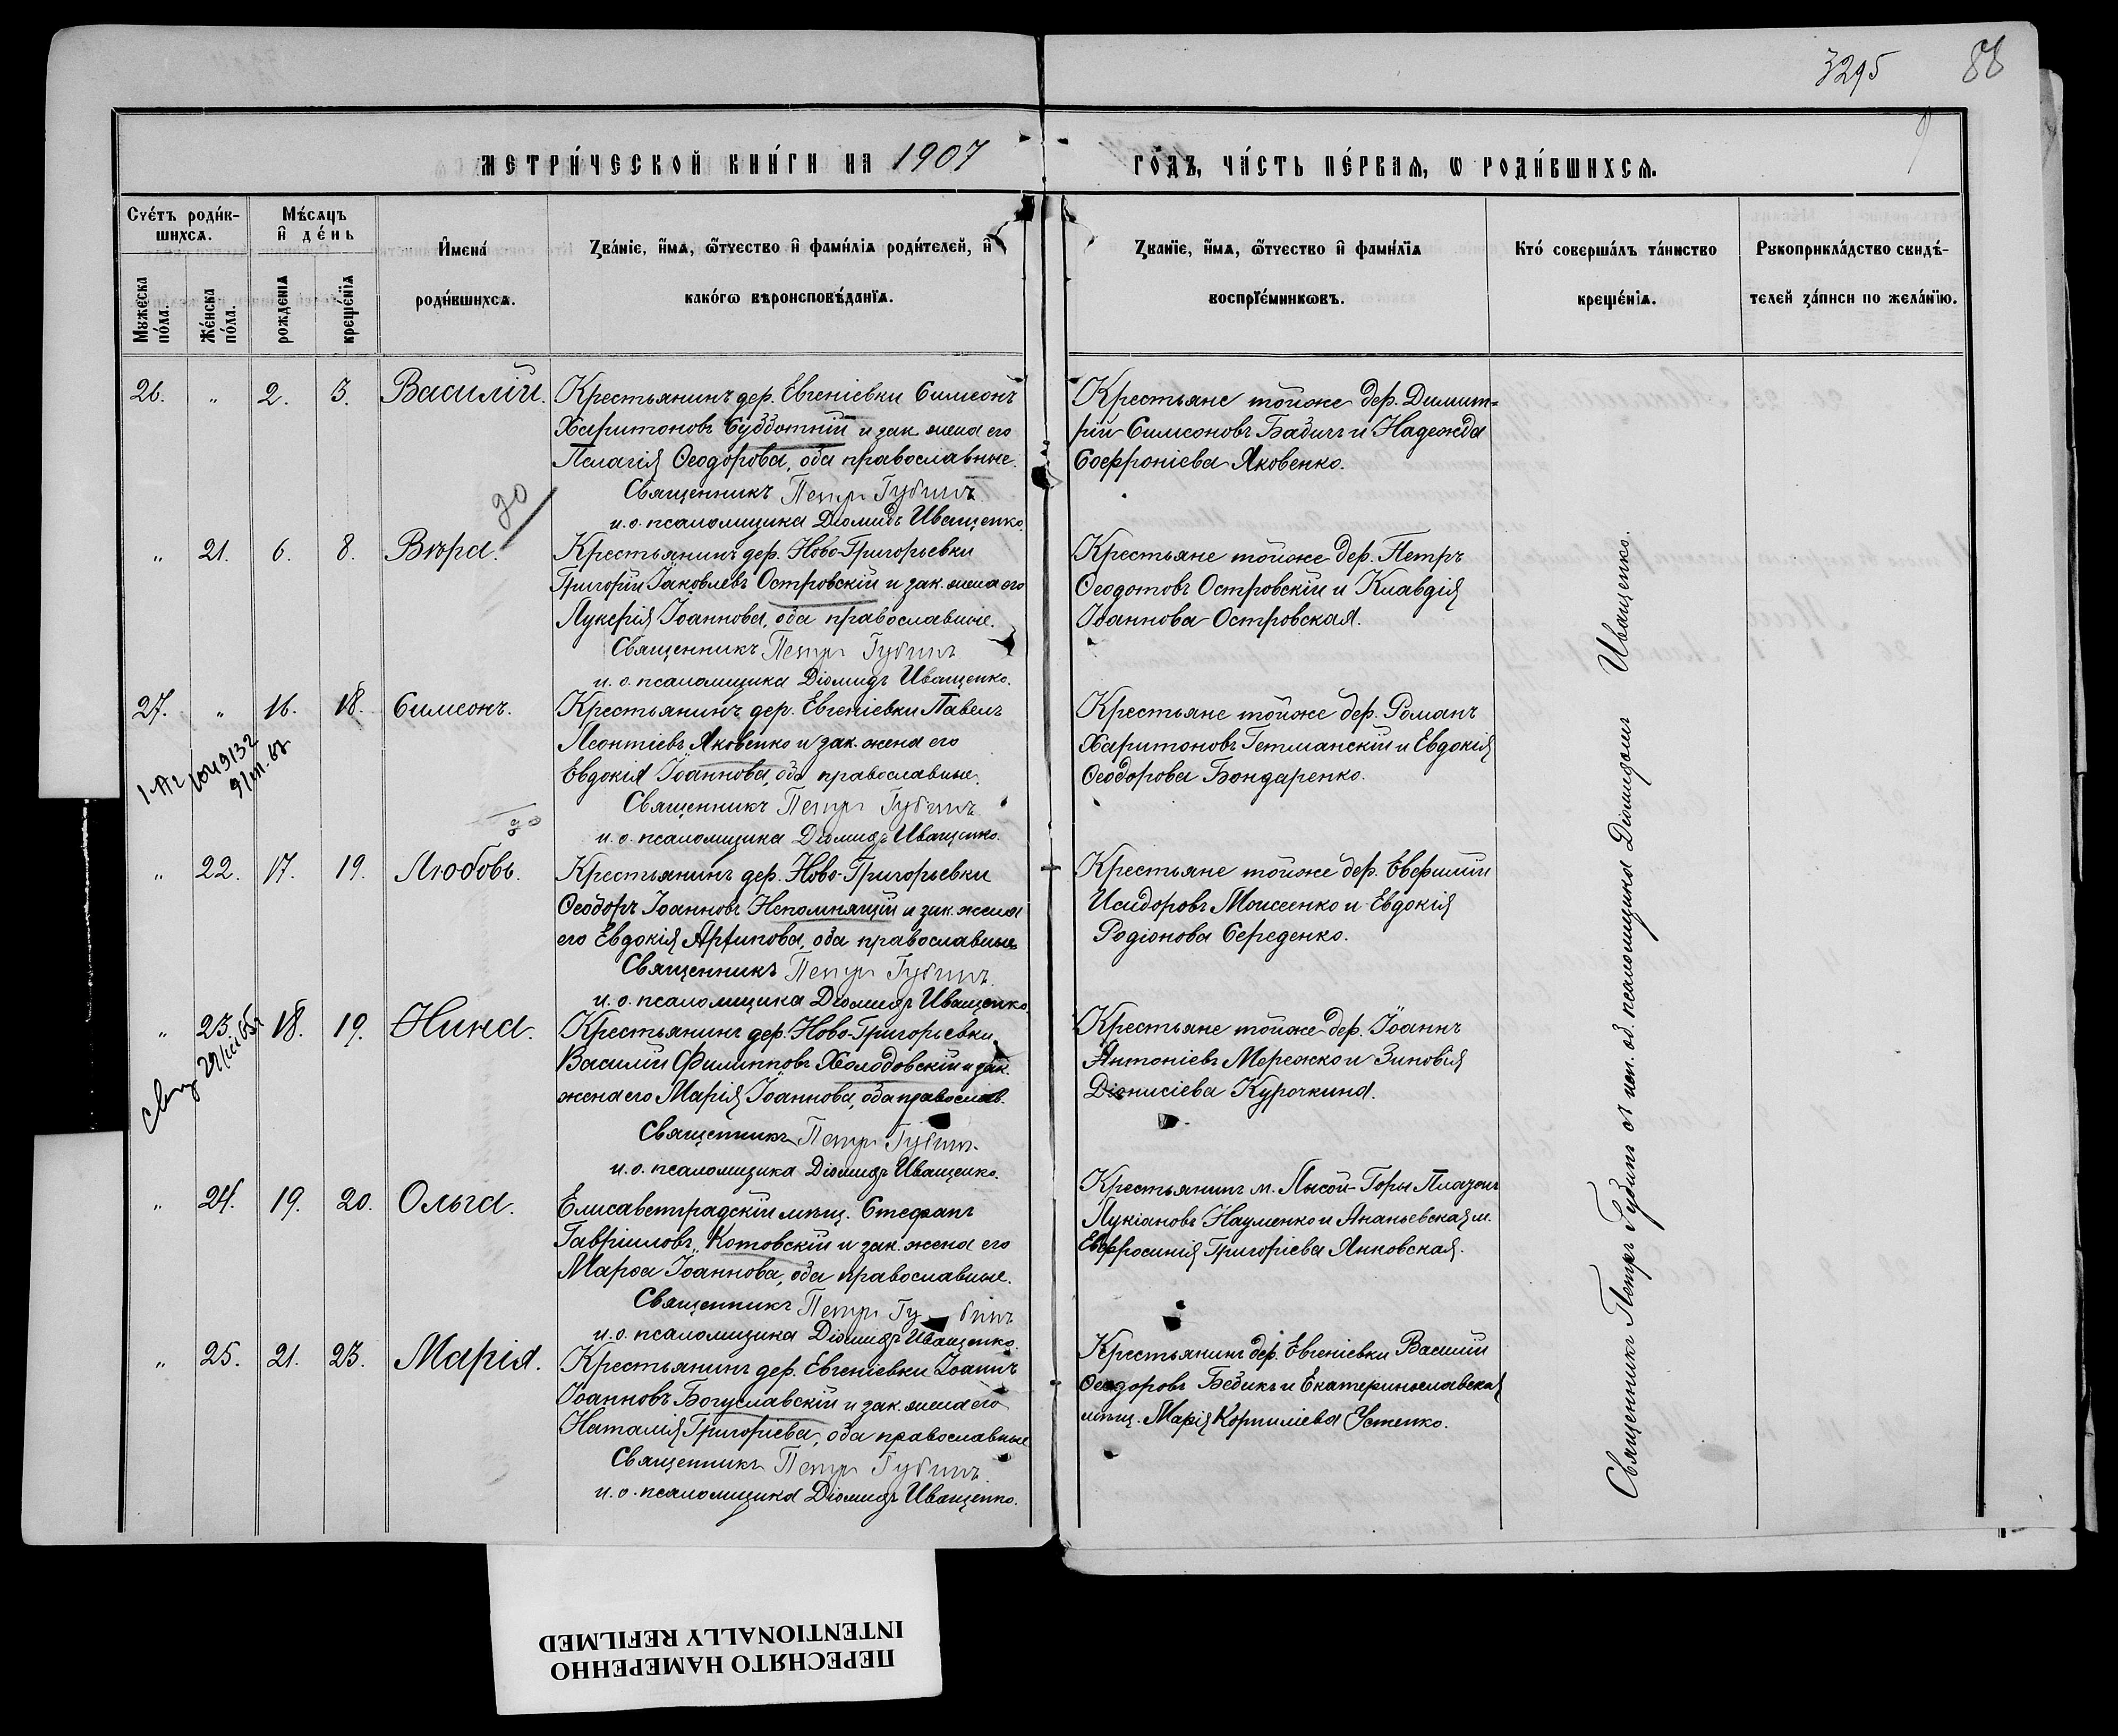 3295
88
МЕТРИ́ЧЕСКОЙ КНИ́ГИ НА 1907 ГО́ДЪ, ЧА́СТЬ ПЕ́РВАѦ, Ѡ РОДИ́ВШИХСѦ.
Сче́тъ роди́в-
шихсѧ.
Мѣ́сѧцъ
и҆ де́нь
Мꙋжеска по́ла.
Же́нска по́ла.
рожденїѧ
креще́нїѧ
И҆мена́
роди́вшихсѧ.
Зва́нїе, и҆́мѧ, ѻ҆́тчество и҆ фами́лїа роди́телей, и҆
како́гѡ вѣроисповѣ́данїѧ.
Зва́нїе, и҆́мѧ, ѻ҆́тчество и҆ фами́лїѧ
воспрїе́мникѡвъ.
Кто́ соверша́лъ та́инство
креще́нїѧ.
Рꙋкоприкла́дство свидѣ́-
телей за́писи по жела́нїю.
26. " 2. 3. Василій.
Крестьянинъ дер. Евгеніевки Симеонъ
Харитоновъ Субботній и зак. жена его
Пелагія Ѳеодорова, оба православные.
Священникъ Петръ Губинъ
и. о. псаломщика Діомидъ Иващенко.
Крестьяне тойже дер. Димит=
рій Симеоновъ Бадичъ и Надежда
Софроніева Яковенко.
" 21. 6. 8. Вѣра.
Крестьянинъ дер. Ново-Григорьевки
Григорій Іаковлевъ Островскій и зак. жена его
Лукерія Іоаннова, оба православные.
Священникъ Петръ Губинъ
и. о. псаломщика Діомидъ Иващенко.
Крестьяне тойже дер. Петръ
Ѳеодотовъ Островскій и Клавдія
Іоаннова Островская.
27. " 16. 18. Симеонъ.
Крестьянинъ дер. Евгеніевки Павелъ
Леонтіевъ Яковенко и зак. жена его
Евдокія Іоаннова, оба православные.
Священникъ Петръ Губинъ
и. о. псаломщика Діомидъ Иващенко.
Крестьяне тойже дер. Романъ
Харитоновъ Гетманскій и Евдокія
Ѳеодорова Бондаренко.
" 22. 17. 19. Любовь.
Крестьянинъ дер. Ново-Григорьевки
Ѳеодоръ Іоанновъ Непомнящій и зак. жена
его Евдокія Архипова, оба православные
Священникъ Петръ Губинъ
и. о. псаломщика Діомидъ Иващенко
Крестьяне тойже дер. Евфимій
Исидоровъ Моисеенко и Евдокія
Родіонова Середенко.
" 23. 18. 19. Нина.
Крестьянинъ дер. Ново-Григорьевки
Василій Филипповъ Холодовскій и зак.
жена его Марія Іоаннова, оба православ.
Священникъ Петръ Губинъ
и. о. псаломщика Діомидъ Иващенко.
Крестьяне тойже дер. Іоаннъ
Антоніевъ Мережко и Зиновія
Діонисіева Курочкина.
" 24. 19. 20. Ольга.
Елисаветградскій мѣщ. Стефанъ
Гавріиловъ Котовскій и зак. жена его
Марѳа Іоаннова, оба православные.
Священникъ Петръ Губинъ
и. о. псаломщика Діомидъ Иващенко.
Крестьянинъ м. Лысой-Горы Платонъ
Лукіановъ Науменко и Ананьевская м.
Евфросинія Григоріева Янковская.
" 25. 21. 23. Марія.
Крестьянинъ дер. Евгеніевки Іоаннъ
Іоанновъ Богуславскій и зак. жена его
Наталія Григоріева, оба православные
Священникъ Петръ Губинъ
и. о. псаломщика Діомидъ Иващенко.
Крестьянинъ дер. Евгеніевки Василій
Ѳеодоровъ Бедикъ и Екатеринославская
мѣщ. Марія Корниліева Устенко.
Священникъ Петръ Губинъ съ исп. об. псаломщика Діомидомъ Иващенко.
ПЕРЕСНЯТО НАМЕРЕННО
INTENTIONALLY REFILMED